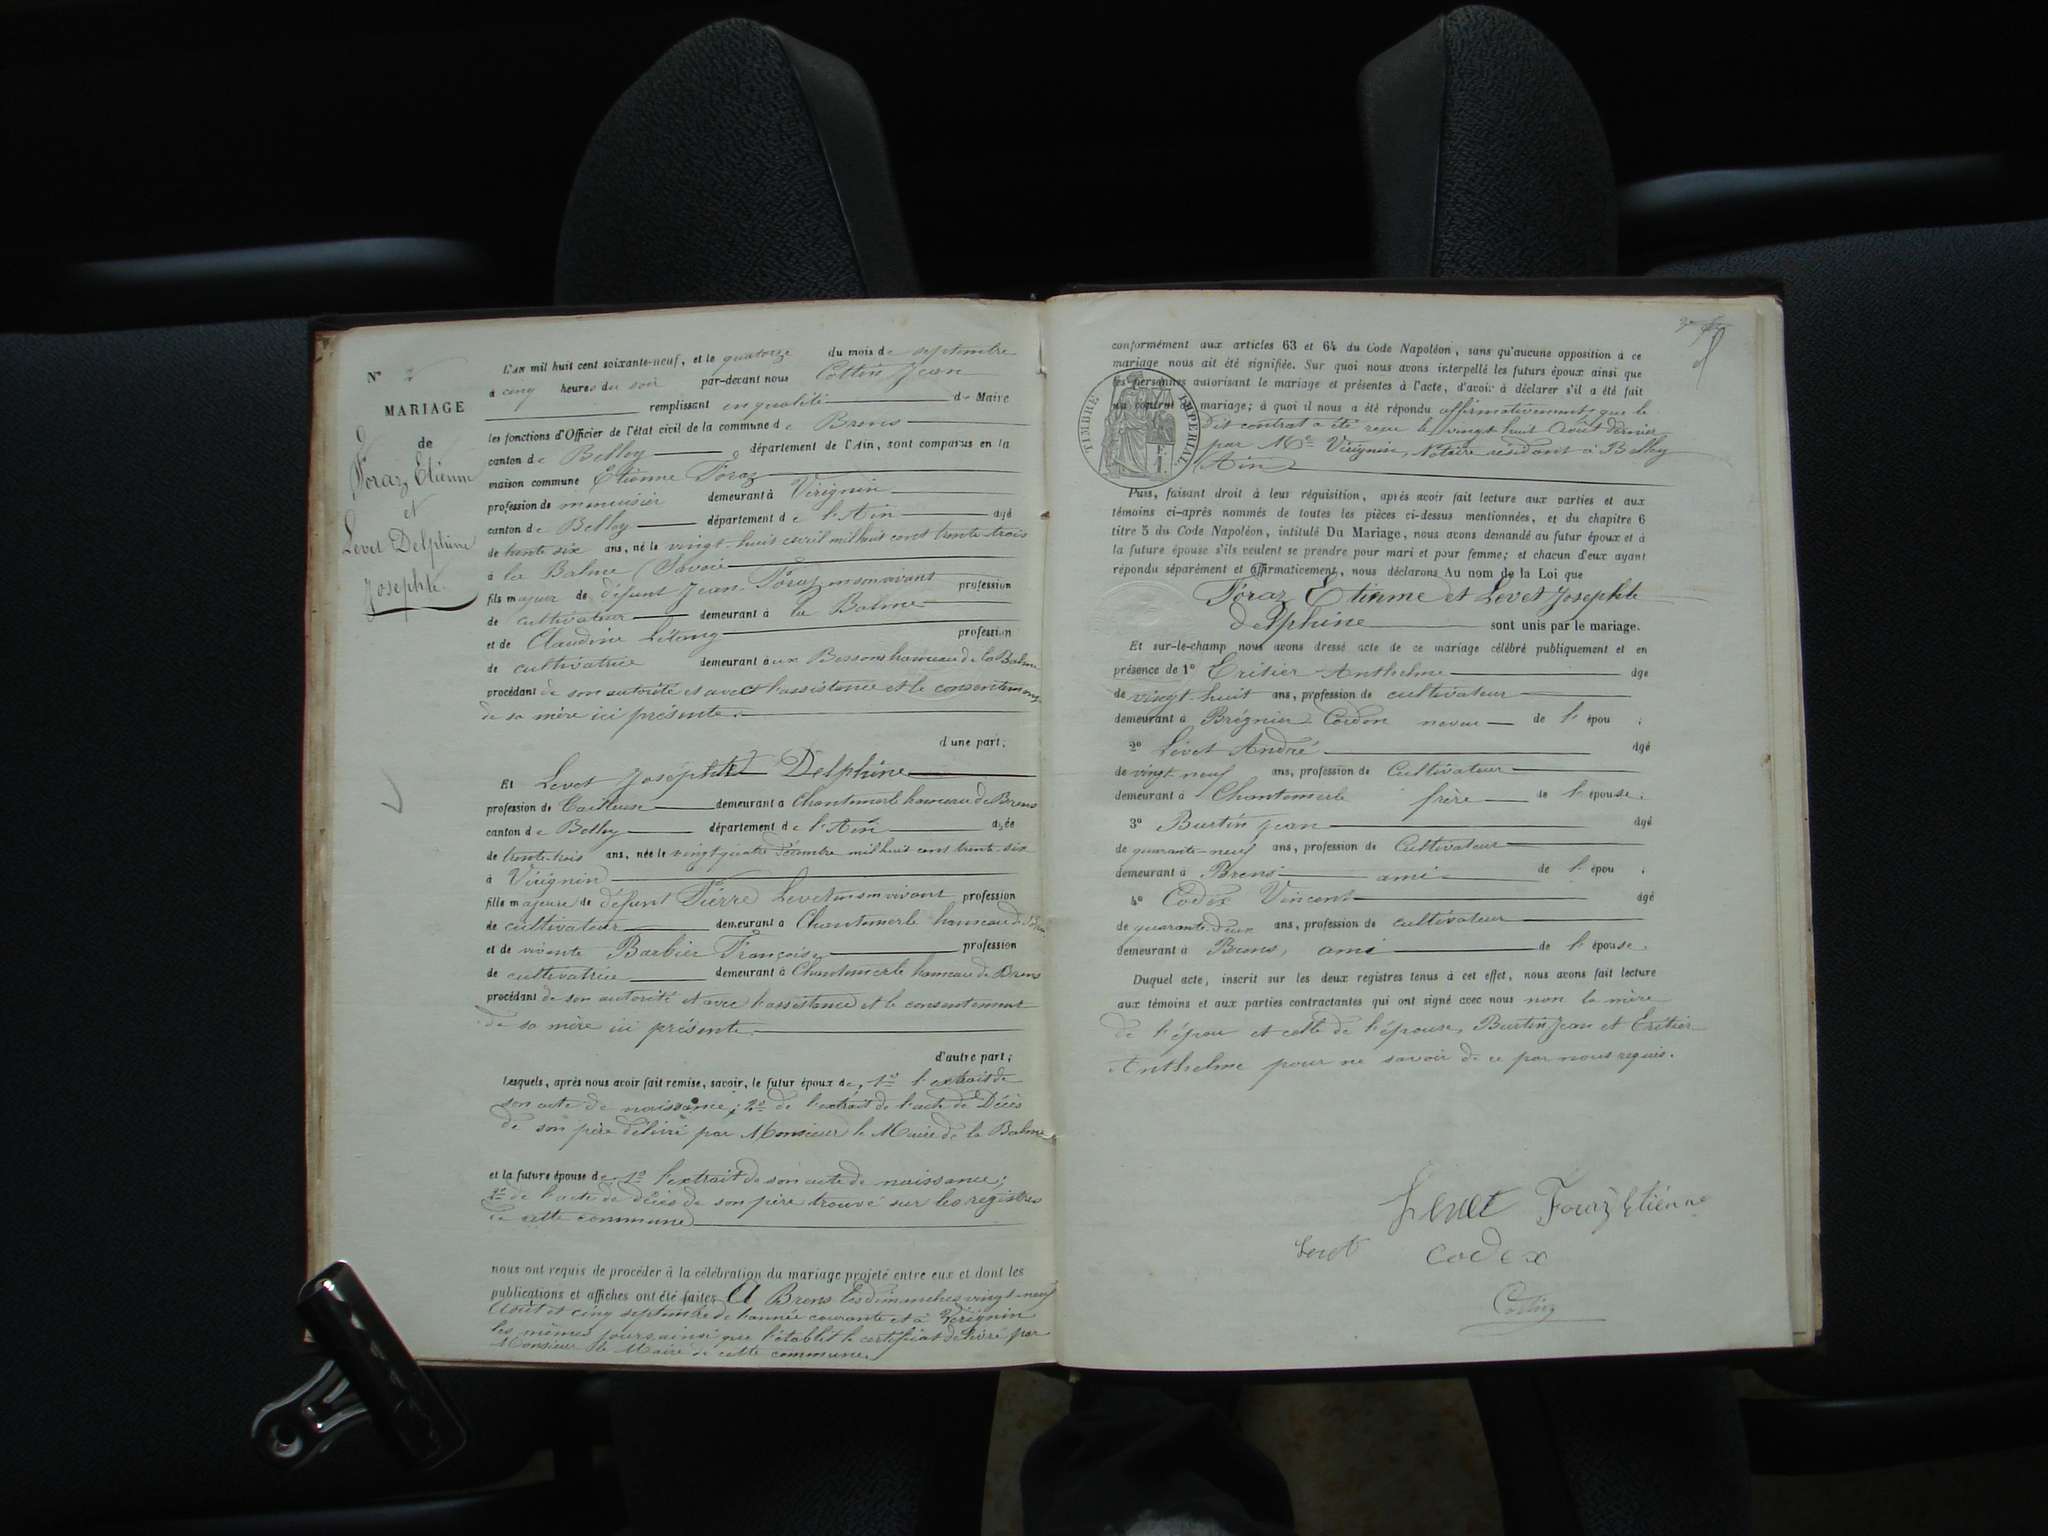 N° 2
MARIAGE
de
Foraz Etienne
et
Levet Delphine
Josephte
L'AN mil huit cent soixante-neuf, et le quatorze du mois de septembre
à cinq heures du soir par-devant nous Cottin Jean
remplissant en qualité de Maire
les fonctions d'Officier de l'état civil de la commune de Brens
canton de Belley département de l'Ain, sont comparus en la
maison commune Etienne Foraz
profession de menuisier demeurant à Virignin
canton de Belley département de l'Ain agé
de trente six ans, né le vingt-huit avril mil huit cent trente-trois
à la Balme (Savoie
fils majeur de défunt Jean Foraz en son vivant profession
de cultivateur demeurant à la Balme
et de Claudine profession
de cultivatrice demeurant aux Bessons hameau de la Balme
procédant de son autorité et avec l'assistance et le consentement
de sa mère ici présente.
d'une part;
Et Levet Joséphte Delphine
profession de Tailleuse demeurant a Chantemerle hameau de Brens
canton de Belley département de l'Ain agée
de trente-trois ans, née le vingt quatre Décembre mil huit cent trente-six
à Virignin
fille majeure de défunt Pierre Levet en son vivant profession
de cultivateur demeurant a Chantemerle hameau de Brens
et de vivente Barbier Françoise profession
de cultivatrice demeurant à Chantemerle hameau de Brens
procédant de son autorité et avec l'assistance et le consentement
de sa mère ici présente.
d'autre part;
Lesquels, après nous avoir fait remise, savoir, le futur époux de, 1° l'extrait de
son acte de naissance; 2° de l'extrait de l'acte de Décès
de son père délivré par Monsieur le Maire de la Balme
et la future épouse de, 1° l'extrait de son acte de naissance;
2° de l'acte de décès de son père trouvé sur les registres
de cette commune
nous ont requis de procéder à la célébration du mariage projeté entre eux et dont les
publications et affiches ont été faites A Brens les dimanches vingt-neuf
Août et cinq septembre de l'année courante et à Virignin
les mêmes jours ainsi que l'établit le certificat délivré par
Monsieur le Maire de cette commune.
conformément aux articles 63 et 64 du Code Napoléon, sans qu'aucune opposition à ce
mariage nous ait été signifiée. Sur quoi nous avons interpellé les futurs époux ainsi que
les personnes autorisant le mariage et présentes à l'acte, d'avoir à déclarer s'il a été fait
un contrat de mariage; à quoi il nous a été répondu affirmativement, que le
Dit contrat a été reçu le vingt huit Août dernier
par Me Virignin, Notaire résidant à Belley
(Ain)
TIMBRE IMPERIAL
Puis, faisant droit à leur réquisition, après avoir fait lecture aux parties et aux
témoins ci-après nommés de toutes les pièces ci-dessus mentionnées, et du chapitre 6
titre 5 du Code Napoléon, intitulé Du Mariage, nous avons demandé au futur époux et à
la future épouse s'ils veulent se prendre pour mari et pour femme; et chacun d'eux ayant
répondu séparément et affirmativement, nous déclarons Au nom de la Loi que
Foraz Etienne et Levet Josephte
Delphine sont unis par le mariage.
Et sur-le-champ nous avons dressé acte de ce mariage célébré publiquement et en
présence de 1° Eritier Anthelme âge
de vingt-huit ans, profession de cultivateur
demeurant à Brégnier-Cordon neveu de l'épou ;
2° Levet André âgé
de vingt neuf ans, profession de Cultivateur
demeurant à Chantemerle frère de l'épouse;
3° Burtin Jean âgé
de quarante-neuf ans, profession de Cultivateur
demeurant à Brens ami de l'épou ;
4° Codex Vincent âgé
de quarante-deux ans, profession de cultivateur
demeurant à Brens, ami de l'épouse.
Duquel acte, inscrit sur les deux registres tenus à cet effet, nous avons fait lecture
aux témoins et aux parties contractantes qui ont signé avec nous non la mère
de l'épou et celle de l'épouse, Burtin Jean et Eritier
Anthelme pour ne savoir de ce par nous requis.
Levet Foraz Etiénne
Levet codex
Cottin